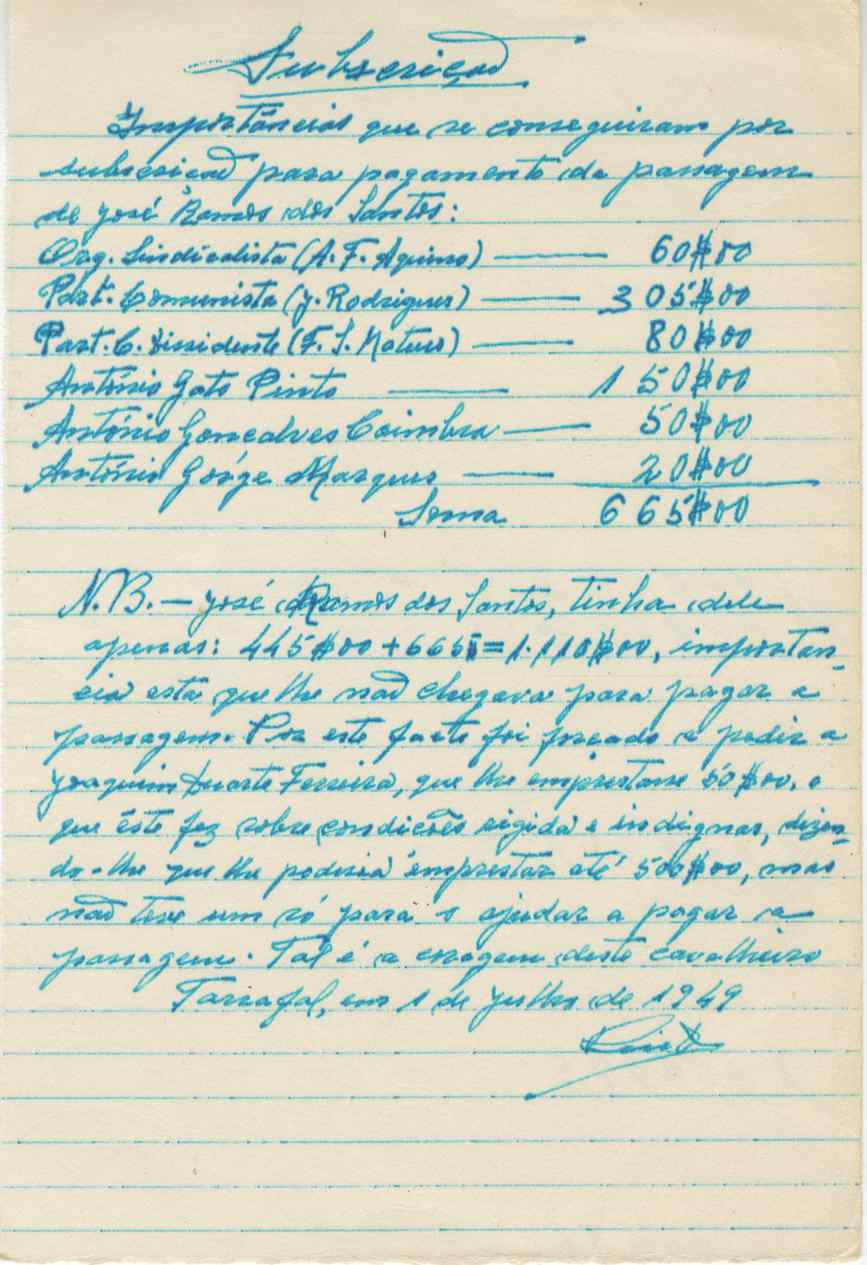 Subscrição
Importâncias que se conseguiram por
subscrição para pagamento da passagem
de José Ramos dos Santos:
Org. Sindicalista (A. F. Aquino) ——— 60$00
Part. Comunista (J. Rodrigues) ——— 305$00
Part. C. Dissidente (F. S. Mateus) ——— 80$00
António Gato Pinto ——— 150$00
António Gonçalves Coimbra —— 50$00
António Jorge Marques —— 20$00
Soma 665$00
N.B. — José Ramos dos Santos, tinha dele
apenas: 445$00 + 665$ = 1.110$00, importan-
cia esta que lhe não chegava para pagar a
passagem. Por este facto foi forçado a pedir a
Joaquim Duarte Ferreira, que lhe emprestasse 50$00, o
que êste fez sobre condições rigida e indignas, dizen-
do-lhe que lhe poderia emprestar até 500$00, mas
não teve um só para o ajudar a pagar a
passagem. Tal é a coragem deste cavalheiro
Tarrafal, em 1 de Julho de 1949